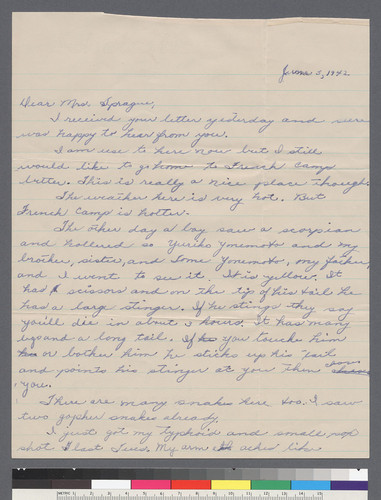 June 5, 1942
Dear Mrs. Sprague,
I received your letter yesterday and were
was happy to hear from you.
I am use to here now but I still
would like to go home to French Camp
better. This is really a nice place though.
The weather here is very hot. But
French Camp is hotter.
The other day a boy saw a scorpian
and hollered so Yuriko Yonemoto and my
brother, sister, and some Yonemoto, my father,
and I went to see it. It is yellow. It
has scissors and on the tip of his tail he
has a large stinger. If he stings they say
you'll die in about 3 hours. It has many
legs and a long tail. If you touch him
or bother him he sticks up his tail
and points his stinger at you then stings
you.
There are many snakes here too. I saw
two gopher snakes already.
I just got my typhoid and small pox
shot last Tues. My arm aches like